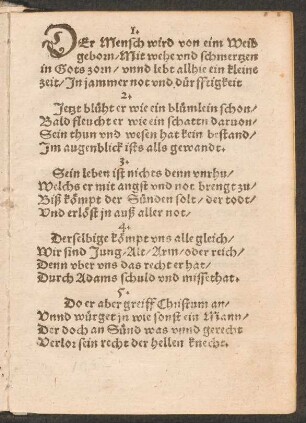 1.
DEr Mensch wird von eim Weib
geborn/Mit wehe vnd schmertzen
in Gots zorn/vnnd lebt allhie ein kleine
zeit/In jammer not vnd dürfftigkeit
2.
Jetzt blüht er wie ein blümlein schon/
Bald fleucht er wie ein schattn daruon/
Sein thun vnd wesen hat kein bestand/
Im augenblick ists alls gewandt.
3.
Sein leben ist nichts denn vnrhu/
Welchs er mit angst vnd not brengt zu/
Biß kömpt der Sünden solt/der todt/
Vnd erlöst jn auß aller not/
4.
Derselbige kömpt vns alle gleich/
Wir sind Jung/Alt/Arm/oder reich/
Denn vber vns das recht er hat/
Durch Adams schuld vnd missethat.
5.
Do er aber greiff Christum an/
Vnnd würget jn wie sonst ein Mann/
Der doch an Sünd was vnnd gerecht
Verlor sein recht der hellen knecht.